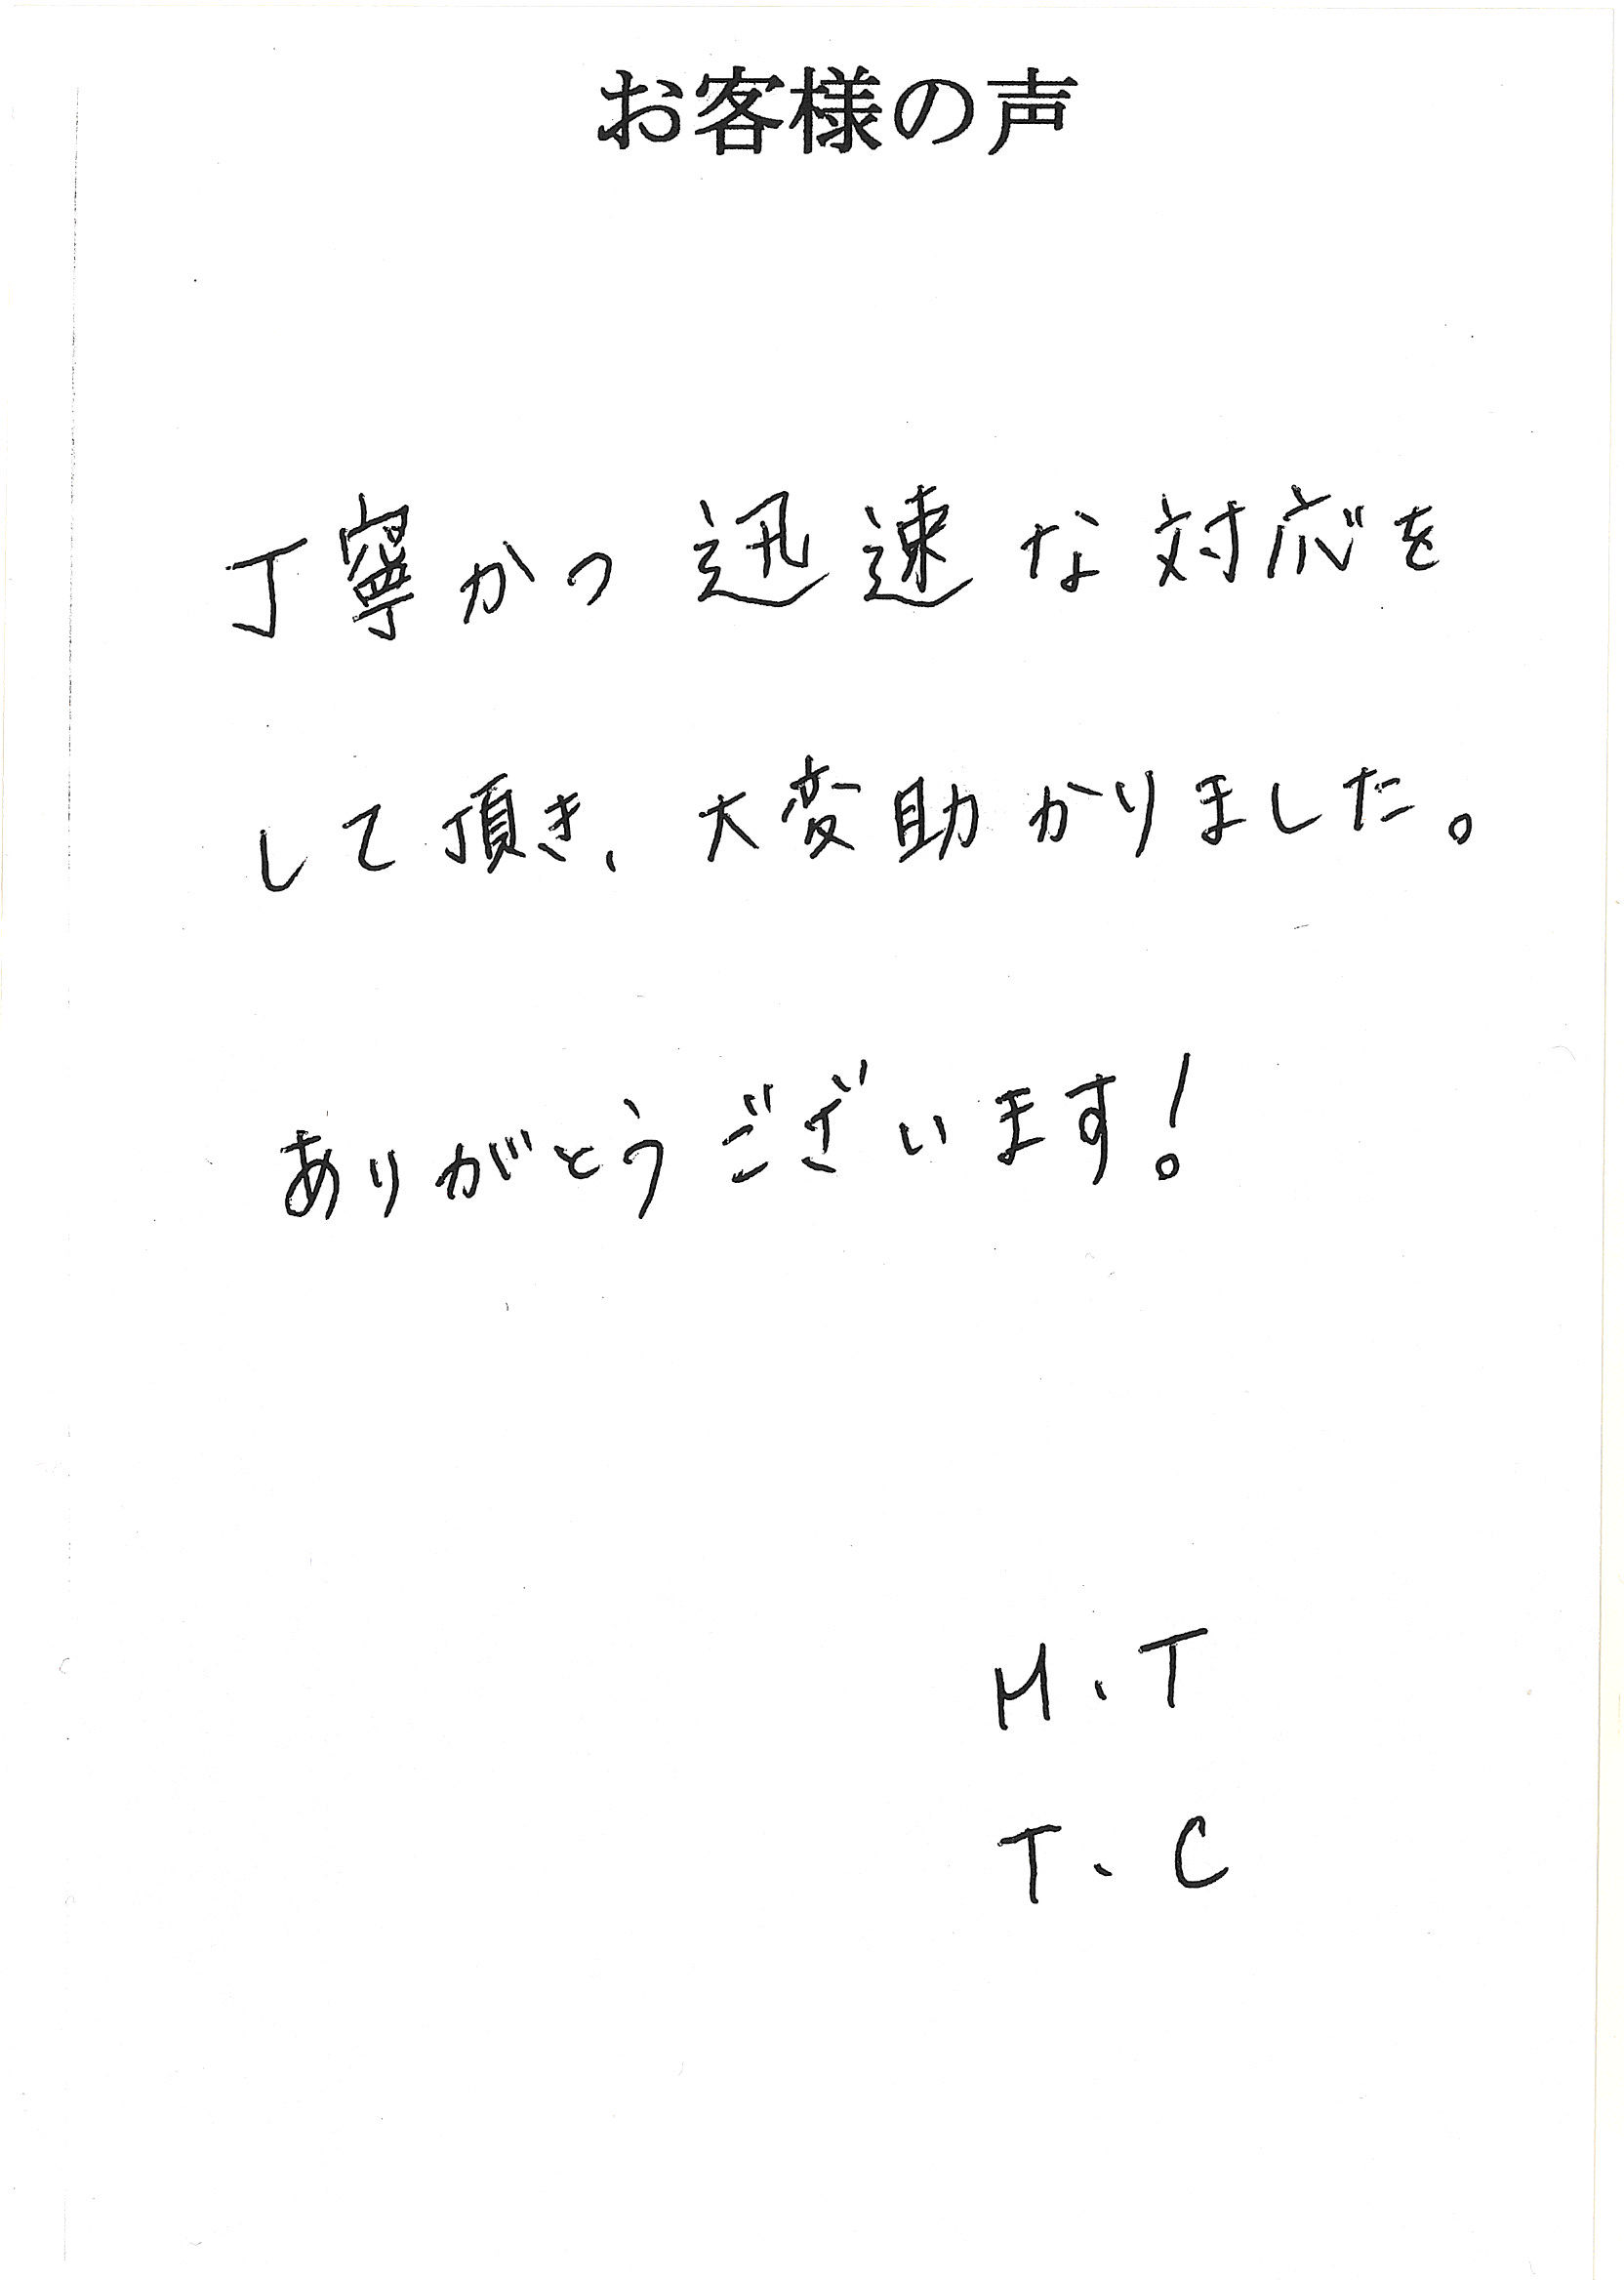 お客様の声
丁寧かつ迅速な対応を
して頂き、大変助かりました。
ありがとうございます!
H.T
T.C